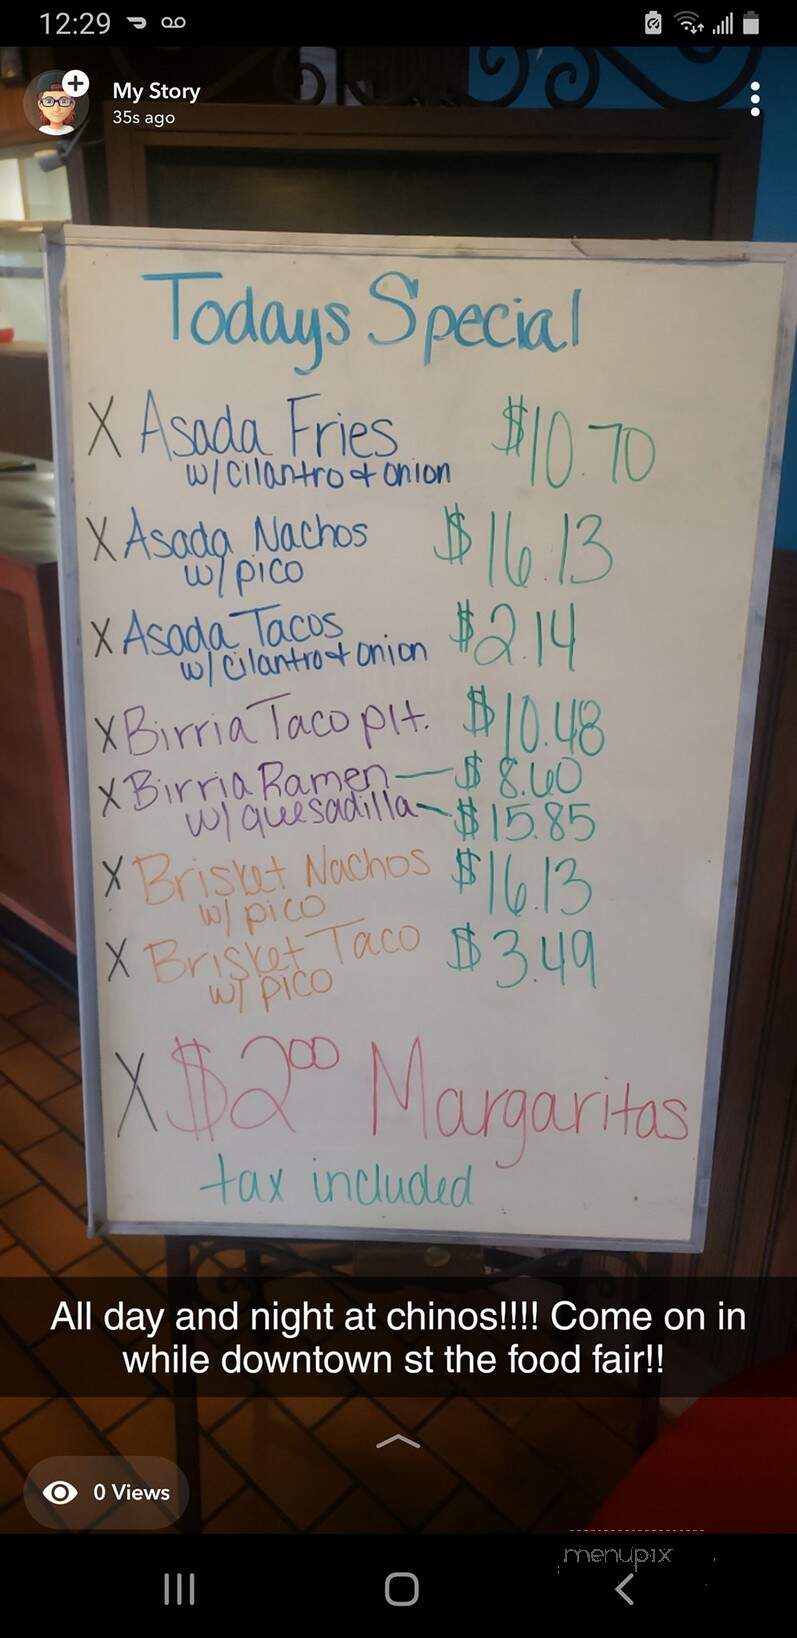 12:29
My Story
35s ago
Todays Special
X Asada Fries $10.70
w/cilantro & onion
X Asada Nachos $16.13
w/ pico
X Asada Tacos $2.14
w/ cilantro & onion
X Birria Taco plt. $10.48
X Birria Ramen — $8.60
w/ quesadilla - $15.85
X Brisket Nachos $16.13
w/ pico
X Brisket Taco $3.49
w/ pico
X $2.00 Margaritas
tax included
All day and night at chinos!!!! Come on in
while downtown st the food fair!!
0 Views
menupix